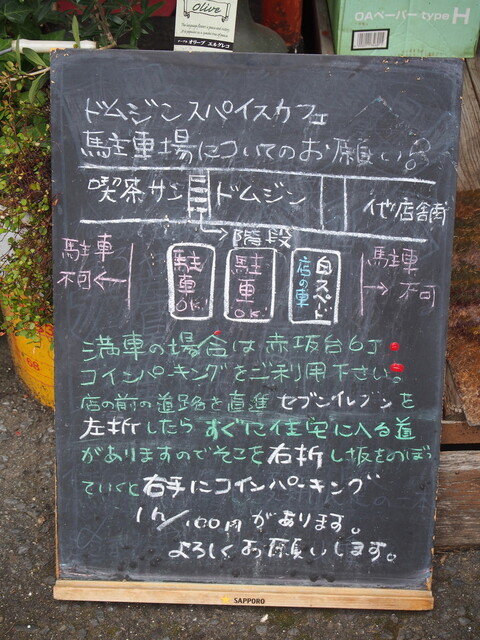 olive
オリーブ エルグレコ
OAペーパー type H
ドムジンスパイスカフェ
駐車場についてのお願い!
喫茶サン ドムジン 他店舗
階段
駐車
不可
駐車OK!
駐車OK!
白スペード
店の車
駐車
不可
満車の場合は赤坂台6丁
コインパーキングをご利用下さい。
店の前の道路を直進 セブンイレブンを
左折したら すぐに住宅に入る道
がありますのでそこを右折し坂をのぼっ
ていくと右手にコインパーキング
1h/100円があります。
よろしくお願いします。
SAPPORO